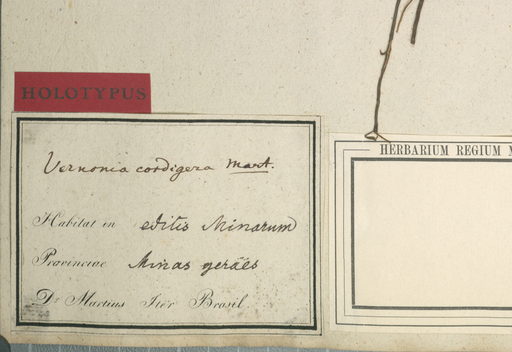 HOLOTYPUS
Vernonia cordigera Mart.
Habitat in editis Minarum
Provinciae Minas geraës
Dr. Martius Iter Brasil.
HERBARIUM REGIUM